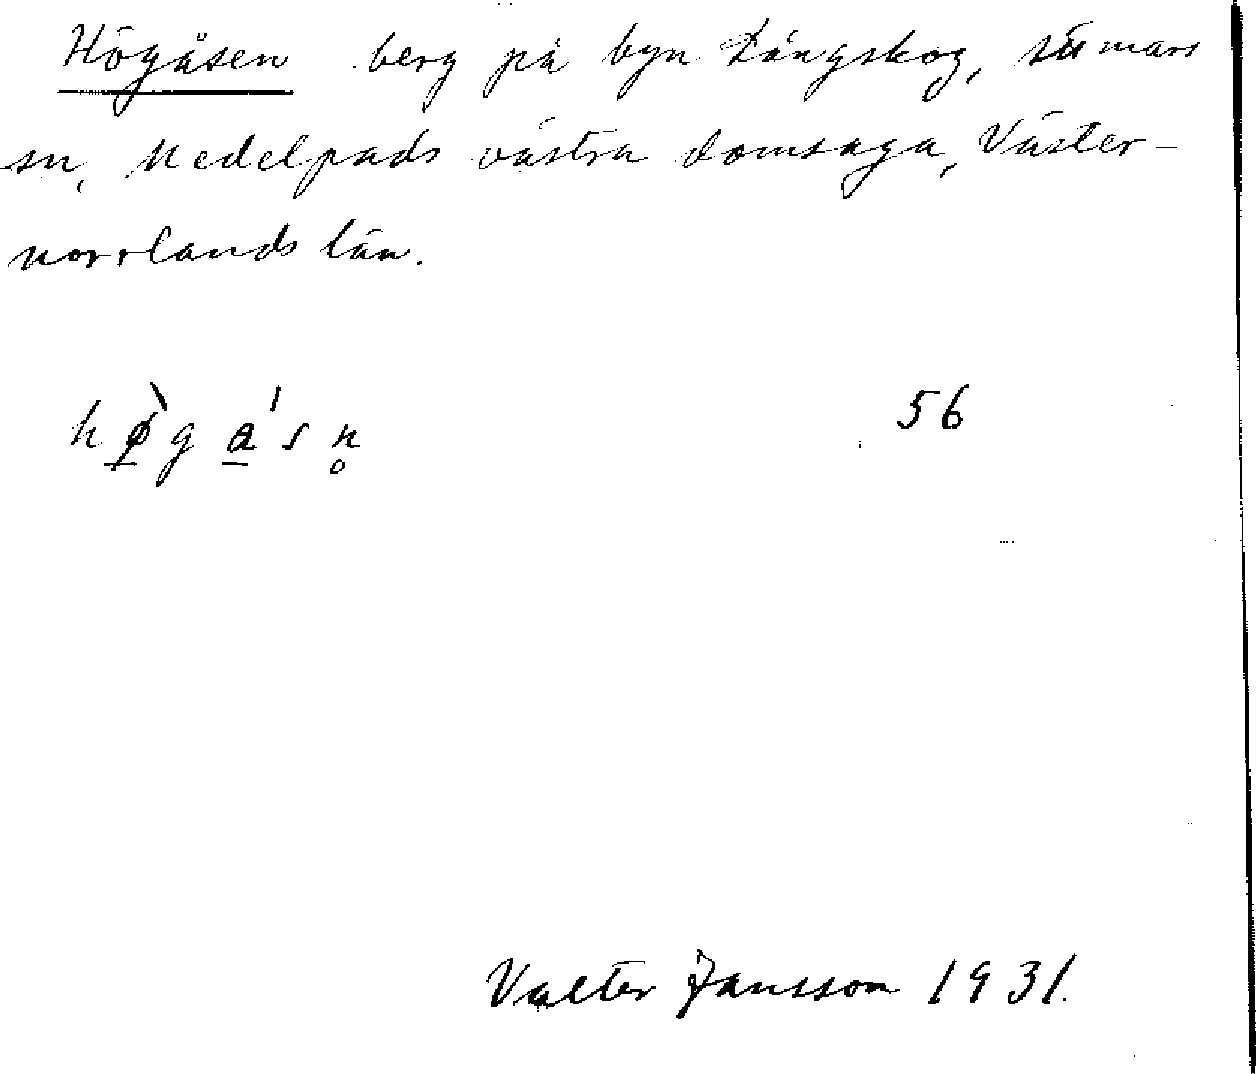 Högåsen berg på byn Långskog, Stömars
sn, Medelpads västra domsaga, Väster-
norrlands län.
hø̀ga̍sn̥ 56
Valter Jansson 1931.